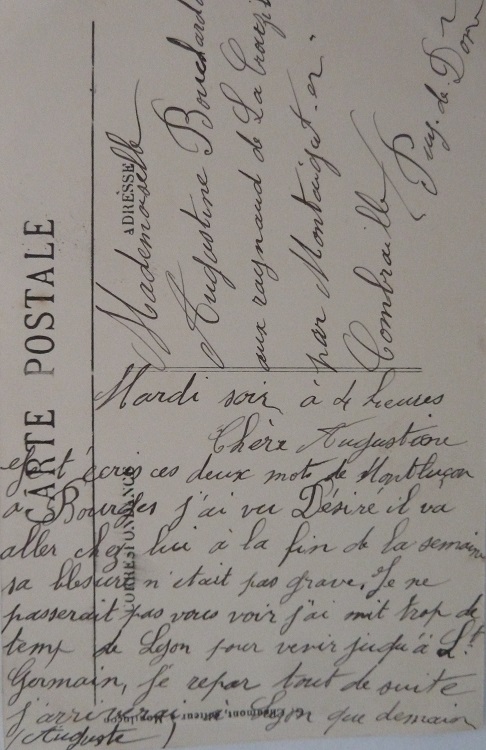 CARTE POSTALE
ADRESSE
Mademoiselle
Augustine Bouchard
aux raynaud de La
par Montaigut-en
Combraille
(Puy-de-Dôme
CORRESPONDANCE
Mardi soir, à 4 heures
Chère Augustine
Je t'écris ces deux mots de Montluçon
a Bourges j'ai vu Désiré il va
aller chez lui à la fin de la semaine
sa blesure n'etait pas grave. Je ne
passerait pas vous voir j'ai mit trop de
temp de Lyon pour venir juqu'à St
Germain, Je repar tout de suite
j'arriverai a Lyon que demain
(Auguste)